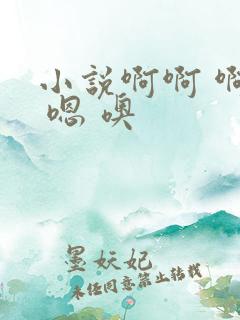 小説啊啊 啊
嗯 噢
墨妖妃
未经同意禁止转载